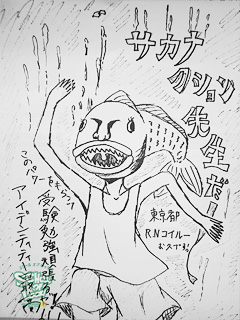 サカナ
クション
先生だ!
このパワーをもらって
受験勉強頑張るぞ!
アイデンティティ
東京都
R.N コイルー
お久です!